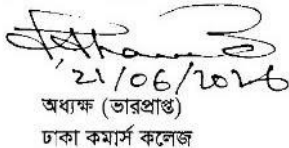 21/06/2026
অধ্যক্ষ (ভারপ্রাপ্ত)
ঢাকা কমার্স কলেজ